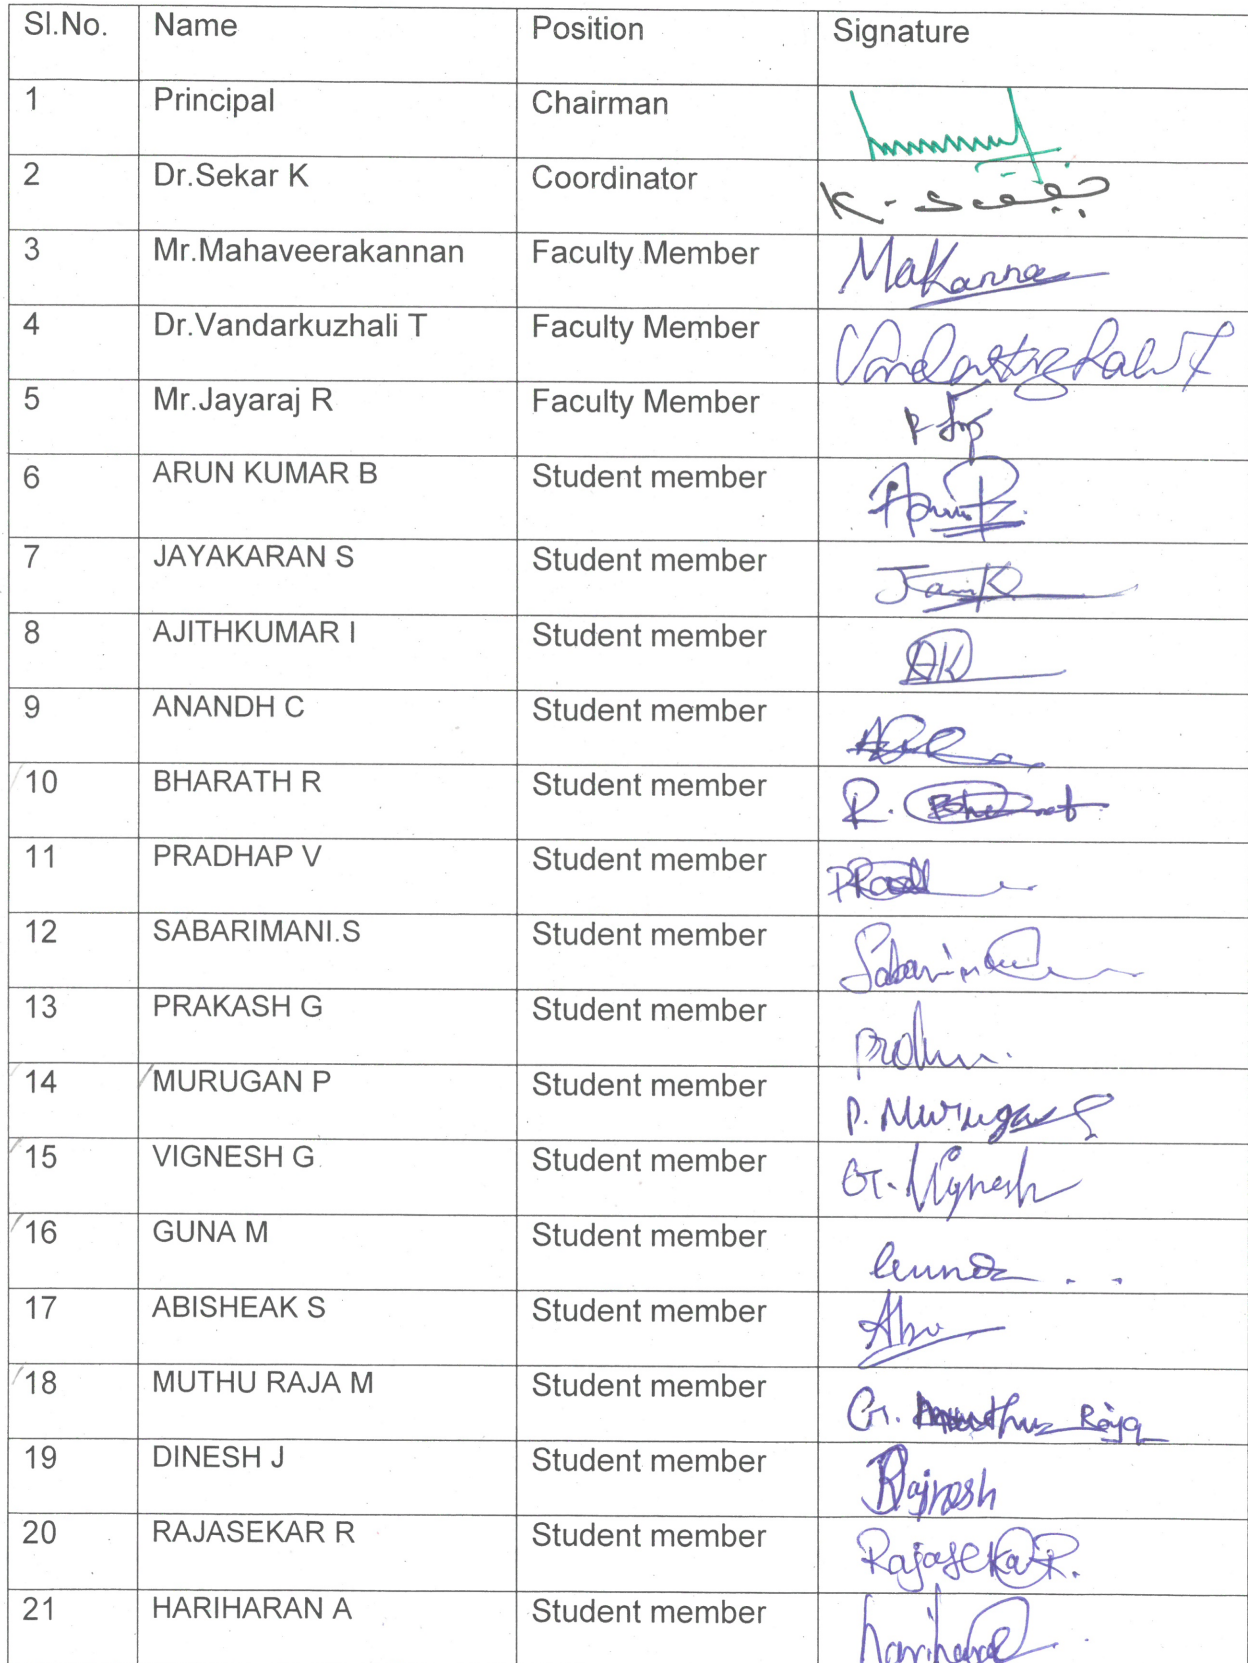 Sl.No. Name Position Signature
1 Principal Chairman
2 Dr.Sekar K Coordinator
3 Mr.Mahaveerakannan Faculty Member MaKanna
4 Dr.Vandarkuzhali T Faculty Member Vandarkuzhali T
5 Mr.Jayaraj R Faculty Member
6 ARUN KUMAR B Student member
7 JAYAKARAN S Student member
8 AJITHKUMAR I Student member AK
9 ANANDH C Student member
10 BHARATH R Student member R.
11 PRADHAP V Student member
12 SABARIMANI.S Student member
13 PRAKASH G Student member
14 MURUGAN P Student member P. Murugan
15 VIGNESH G Student member G. Vignesh
16 GUNA M Student member Guna
17 ABISHEAK S Student member
18 MUTHU RAJA M Student member G. Muthu Raja
19 DINESH J Student member
20 RAJASEKAR R Student member Rajasekar R.
21 HARIHARAN A Student member